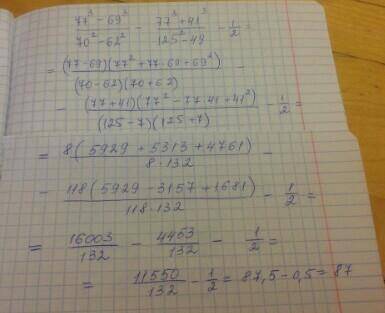 77² - 69² / 70² - 62² - 77² + 41² / 125² - 49 - 1/2 =
= (77-69)(77² + 77·69 + 69²) / (70-62)(70+62) -
- (77+41)(77² - 77·41 + 41²) / (125-7)(125+7) - 1/2 =
= 8(5929 + 5313 + 4761) / 8·132 -
- 118(5929 - 3157 + 1681) / 118·132 - 1/2 =
= 16003/132 - 4453/132 - 1/2 =
= 11550/132 - 1/2 = 87,5 - 0,5 = 87